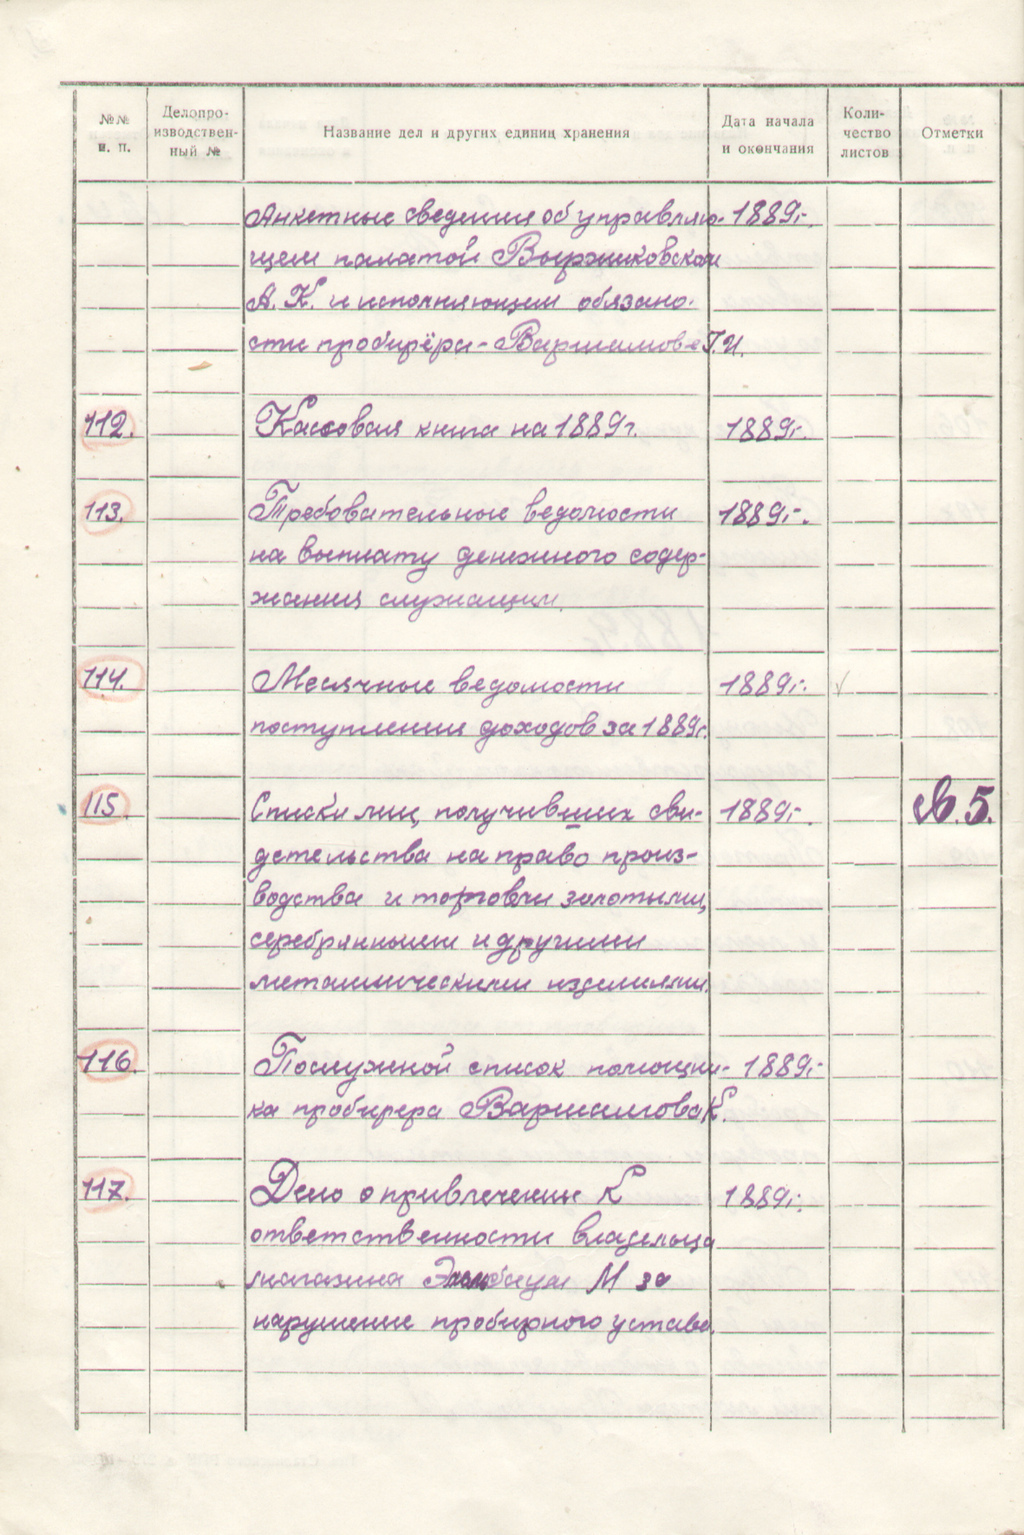 №№ п. п. Делопроизводственный № Название дел и других единиц хранения Дата начала и окончания Количество листов Отметки
Анкетные сведения об управляю- 1889г.
щем палатой
А. К. и исполняющем обязано-
сти пробирёра - Варшамове Г.И.
112. Кассовая книга на 1889г. 1889г.
113. Требовательные ведомости 1889г.
на выплату денежного содер-
жания служащим.
114. Месячные ведомости 1889г. √
поступления доходов за 1889г.
115. Списки лиц, получивших сви- 1889г.
детельства на право произ-
водства и торговли золотыми,
серебрянными и другими
металлическими изделиями.
116. Послужной список помощни- 1889г.
ка пробирера Варшамова К.
117. Дело о привлечении к 1889г.
ответственности владельца
магазина М за
нарушение пробирного устава.